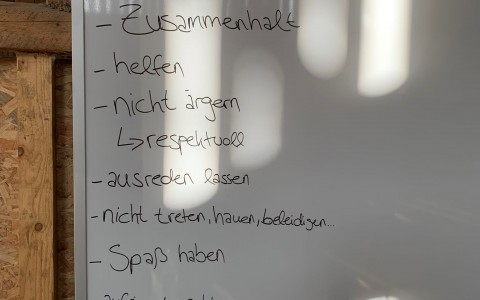 - Zusammenhalt
- helfen
- nicht ärgern
↳ respektvoll
- ausreden lassen
- nicht treten, hauen, beleidigen...
- Spaß haben